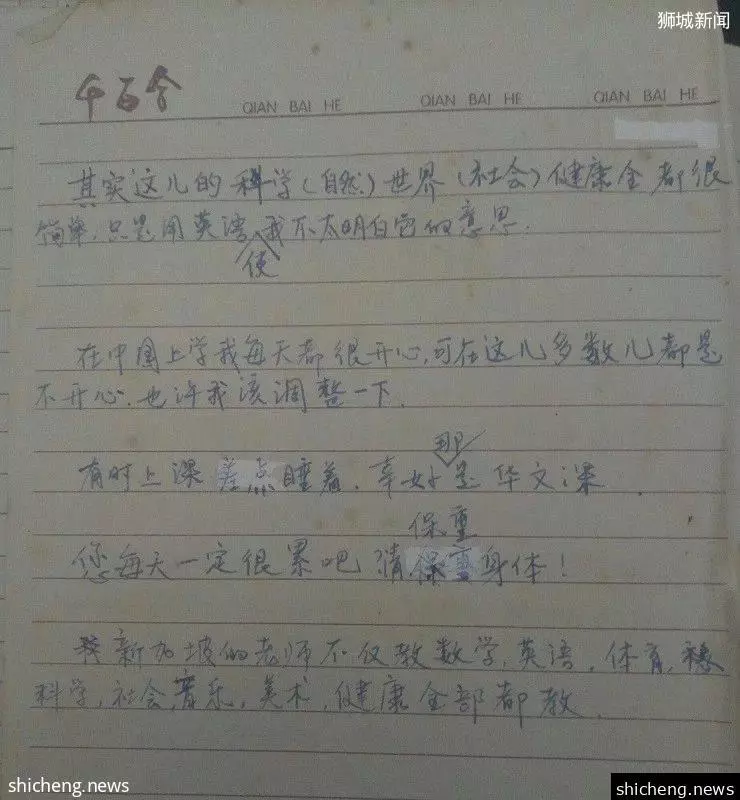 狮城新闻
千百合
QIAN BAI HE QIAN BAI HE QIAN BAI HE
其实这儿的科学(自然)世界(社会)健康全都很
简单.只是用英语使我不太明白它的意思.
在中国上学我每天都很开心,可在这儿多数儿都是
不开心.也许我该调整一下.
那
有时上课差点睡着.幸好是华文课.
保重
您每天一定很累吧 请保重身体!
新加坡的老师不仅教数学,英语,体育,
科学,社会,音乐,美术,健康全部都教.
shicheng.news
shicheng.news